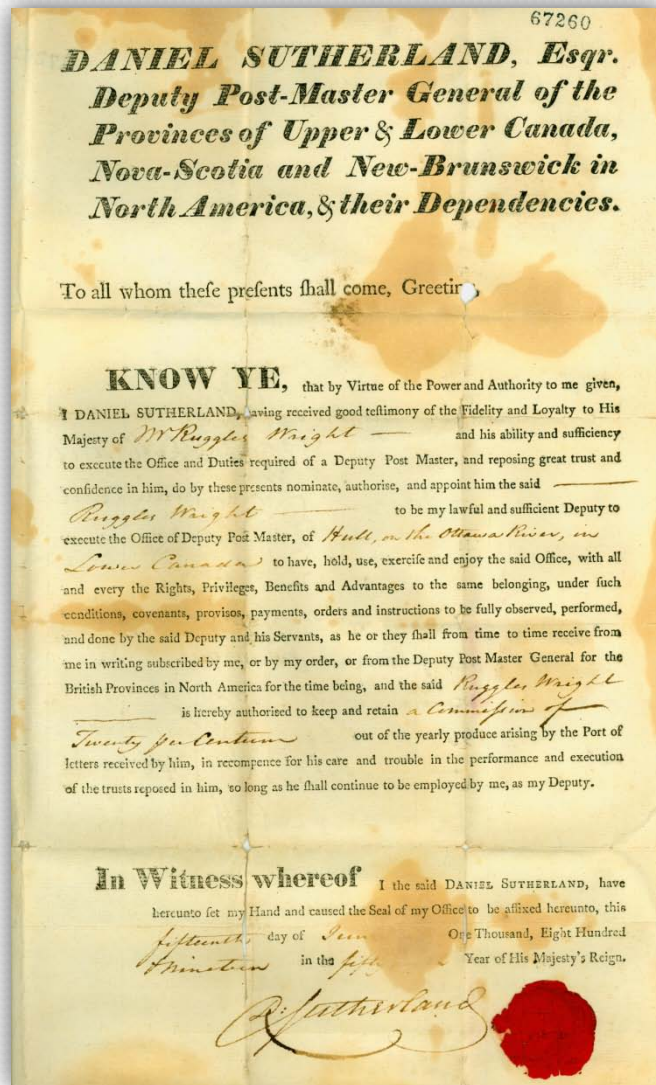 67260
DANIEL SUTHERLAND, Esqr.
Deputy Post-Master General of the
Provinces of Upper & Lower Canada,
Nova-Scotia and New-Brunswick in
North America, & their Dependencies.
To all whom theſe preſents ſhall come, Greeting,
KNOW YE, that by Virtue of the Power and Authority to me given,
I DANIEL SUTHERLAND, having received good teſtimony of the Fidelity and Loyalty to His
Majesty of Mr Ruggles Wright — and his ability and sufficiency
to execute the Office and Duties required of a Deputy Post Master, and reposing great trust and
confidence in him, do by these presents nominate, authorise, and appoint him the said —
Ruggles Wright — to be my lawful and sufficient Deputy to
execute the Office of Deputy Post Master, of Hull, on the Ottawa River, in
Lower Canada to have, hold, use, exercise and enjoy the said Office, with all
and every the Rights, Privileges, Benefits and Advantages to the same belonging, under such
conditions, covenants, provisos, payments, orders and instructions to be fully observed, performed,
and done by the said Deputy and his Servants, as he or they ſhall from time to time receive from
me in writing subscribed by me, or by my order, or from the Deputy Post Master General for the
British Provinces in North America for the time being, and the said Ruggles Wright
— is hereby authorised to keep and retain a Commission of
Twenty per Centum out of the yearly produce arising by the Port of
letters received by him, in recompence for his care and trouble in the performance and execution
of the trusts reposed in him, so long as he shall continue to be employed by me, as my Deputy.
In Witness whereof I the said DANIEL SUTHERLAND, have
hereunto ſet my Hand and caused the Seal of my Office to be affixed hereunto, this
fifteenth day of One Thousand, Eight Hundred
& nineteen in the Year of His Majesty's Reign.
D: Sutherland